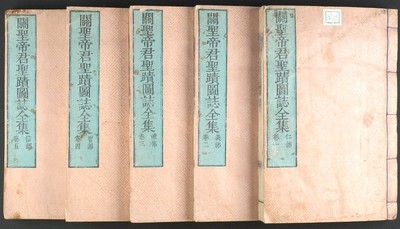 關聖帝君聖蹟圖誌全集
卷一
關聖帝君聖蹟圖誌全集
卷二
關聖帝君聖蹟圖誌全集
卷三
關聖帝君聖蹟圖誌全集
卷四
關聖帝君聖蹟圖誌全集
卷五